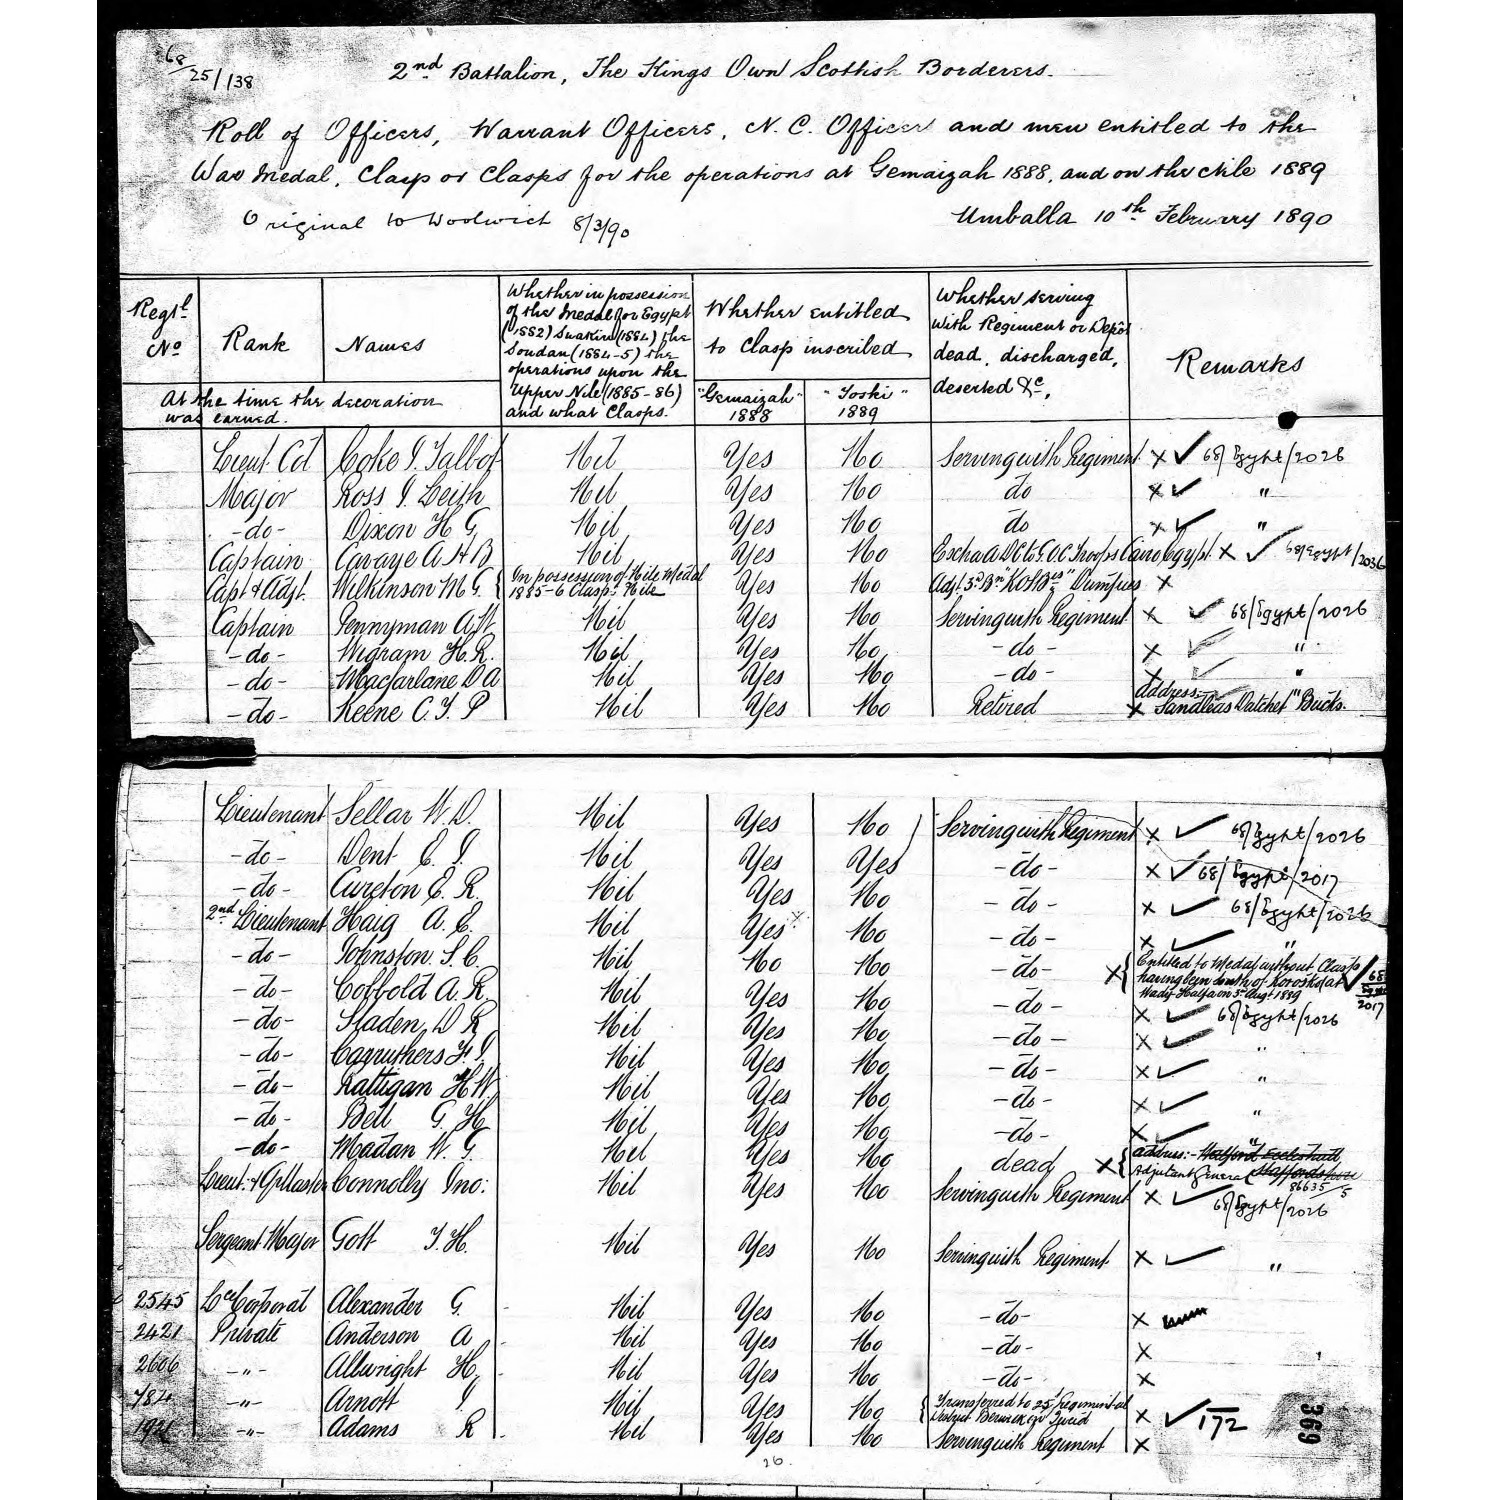 68/25/138
2nd Battalion, The Kings Own Scottish Borderers.
Roll of Officers, Warrant Officers, N. C. Officer and men entitled to the
War Medal, Clasp or Clasps for the operations at Gemaizah 1888, and on the Nile 1889
Original to Woolwich 8/3/90
Umballa 10th February 1890
Regtl No
Rank
Names
At the time the decoration was earned.
Whether in possession of the Medal for Egypt (1882) Suakin (1884) the Soudan (1884-5) the operations upon the Upper Nile (1885-86) and what Clasps.
Whether entitled to Clasp inscribed
"Gemaizah" 1888
"Toski" 1889
Whether serving with Regiment or Depôt dead, discharged, deserted &c,
Remarks
Lieut. Col Coke J. Talbot Nil Yes No Serving with Regiment × ✓ 68/Egypt/2026
Major Ross J. Leith Nil Yes No do × ✓ "
-do- Dixon H G Nil Yes No do × ✓ "
Captain Cavaye A H B Nil Yes No Extra A D C to G.O.C Troops Cairo Egypt. × ✓ 68/Egypt/2036
Capt & Adjt. Wilkinson M G. { In possession of Nile Medal 1885-6 Clasp: Nile Yes No Adjt. 3rd Bn "KOSBrs" Dumfries ×
Captain Pennyman A.W Nil Yes No Serving with Regiment × ✓ 68/Egypt/2026
-do- Wigram H.R. Nil Yes No -do- × ✓ "
-do- Macfarlane D A Nil Yes No -do- × ✓ "
-do- Keene C. J. P Nil Yes No Retired × address:- Sandleas Datchet " Bucks.
Lieutenant Sellar W. D. Nil Yes No Serving with Regiment × ✓ 68/Egypt/2026
-do- Dent E. J. Nil Yes Yes -do- × ✓ 68/Egypt/2017
-do- Cureton E. R. Nil Yes No -do- × ✓ 68/Egypt/2026
2nd Lieutenant Haig A. E. Nil Yes × No -do- × ✓ "
-do- Johnston. S. C. Nil No No -do- × { Entitled to Medal without Clasp having been south of Korosko at Wady Halfa on 3rd Augt 1889 ✓ 68/Egypt/2017
-do- Cobbold A. R. Nil Yes No -do- × ✓ 68/Egypt/2026
-do- Sladen, D R Nil Yes No -do- × ✓ "
-do- Carruthers F. J. Nil Yes No -do- × ✓ "
-do- Rattigan H.W. Nil Yes No -do- × ✓ "
-do- Bell G. H. Nil Yes No -do- × ✓ "
-do- Madan W. G. Nil Yes No dead × { address:- Halford Eccleshall Staffordshire Adjutant General 86635/5
Lieut. & Qr Master Connolly Jno: Nil Yes No Serving with Regiment × ✓ 68/Egypt/2026
Sergeant Major Gott J. H. Nil Yes No Serving with Regiment × ✓ "
2545 Lce Corporal Alexander G. Nil Yes No -do- ×
2421 Private Anderson A Nil Yes No -do- ×
2606 -"- Allwright H, Nil Yes No -do- ×
784 -"- Arnott J. Nil Yes No { Transferred to 25th Regimental District Berwick on Tweid × ✓ 172
1921 -"- Adams R Nil Yes No Serving with Regiment ×
26.
369